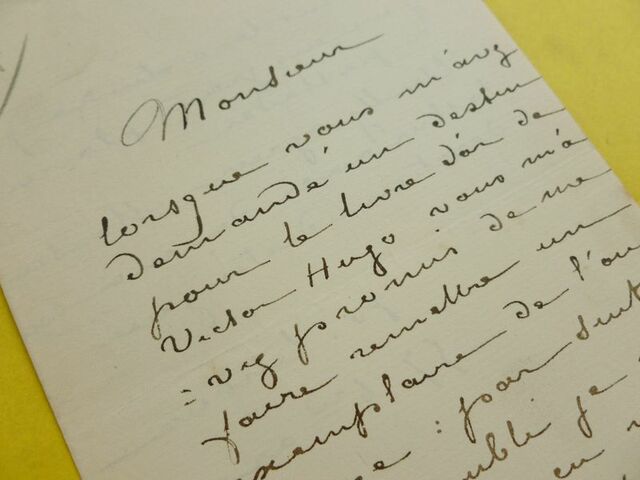 Monsieur
lorsque vous m'avez
demandé un dessin
pour le livre d'or de
Victor Hugo vous m'a
=vez promis de me
faire remettre un
exemplaire de l'ou
: par suite
je
en